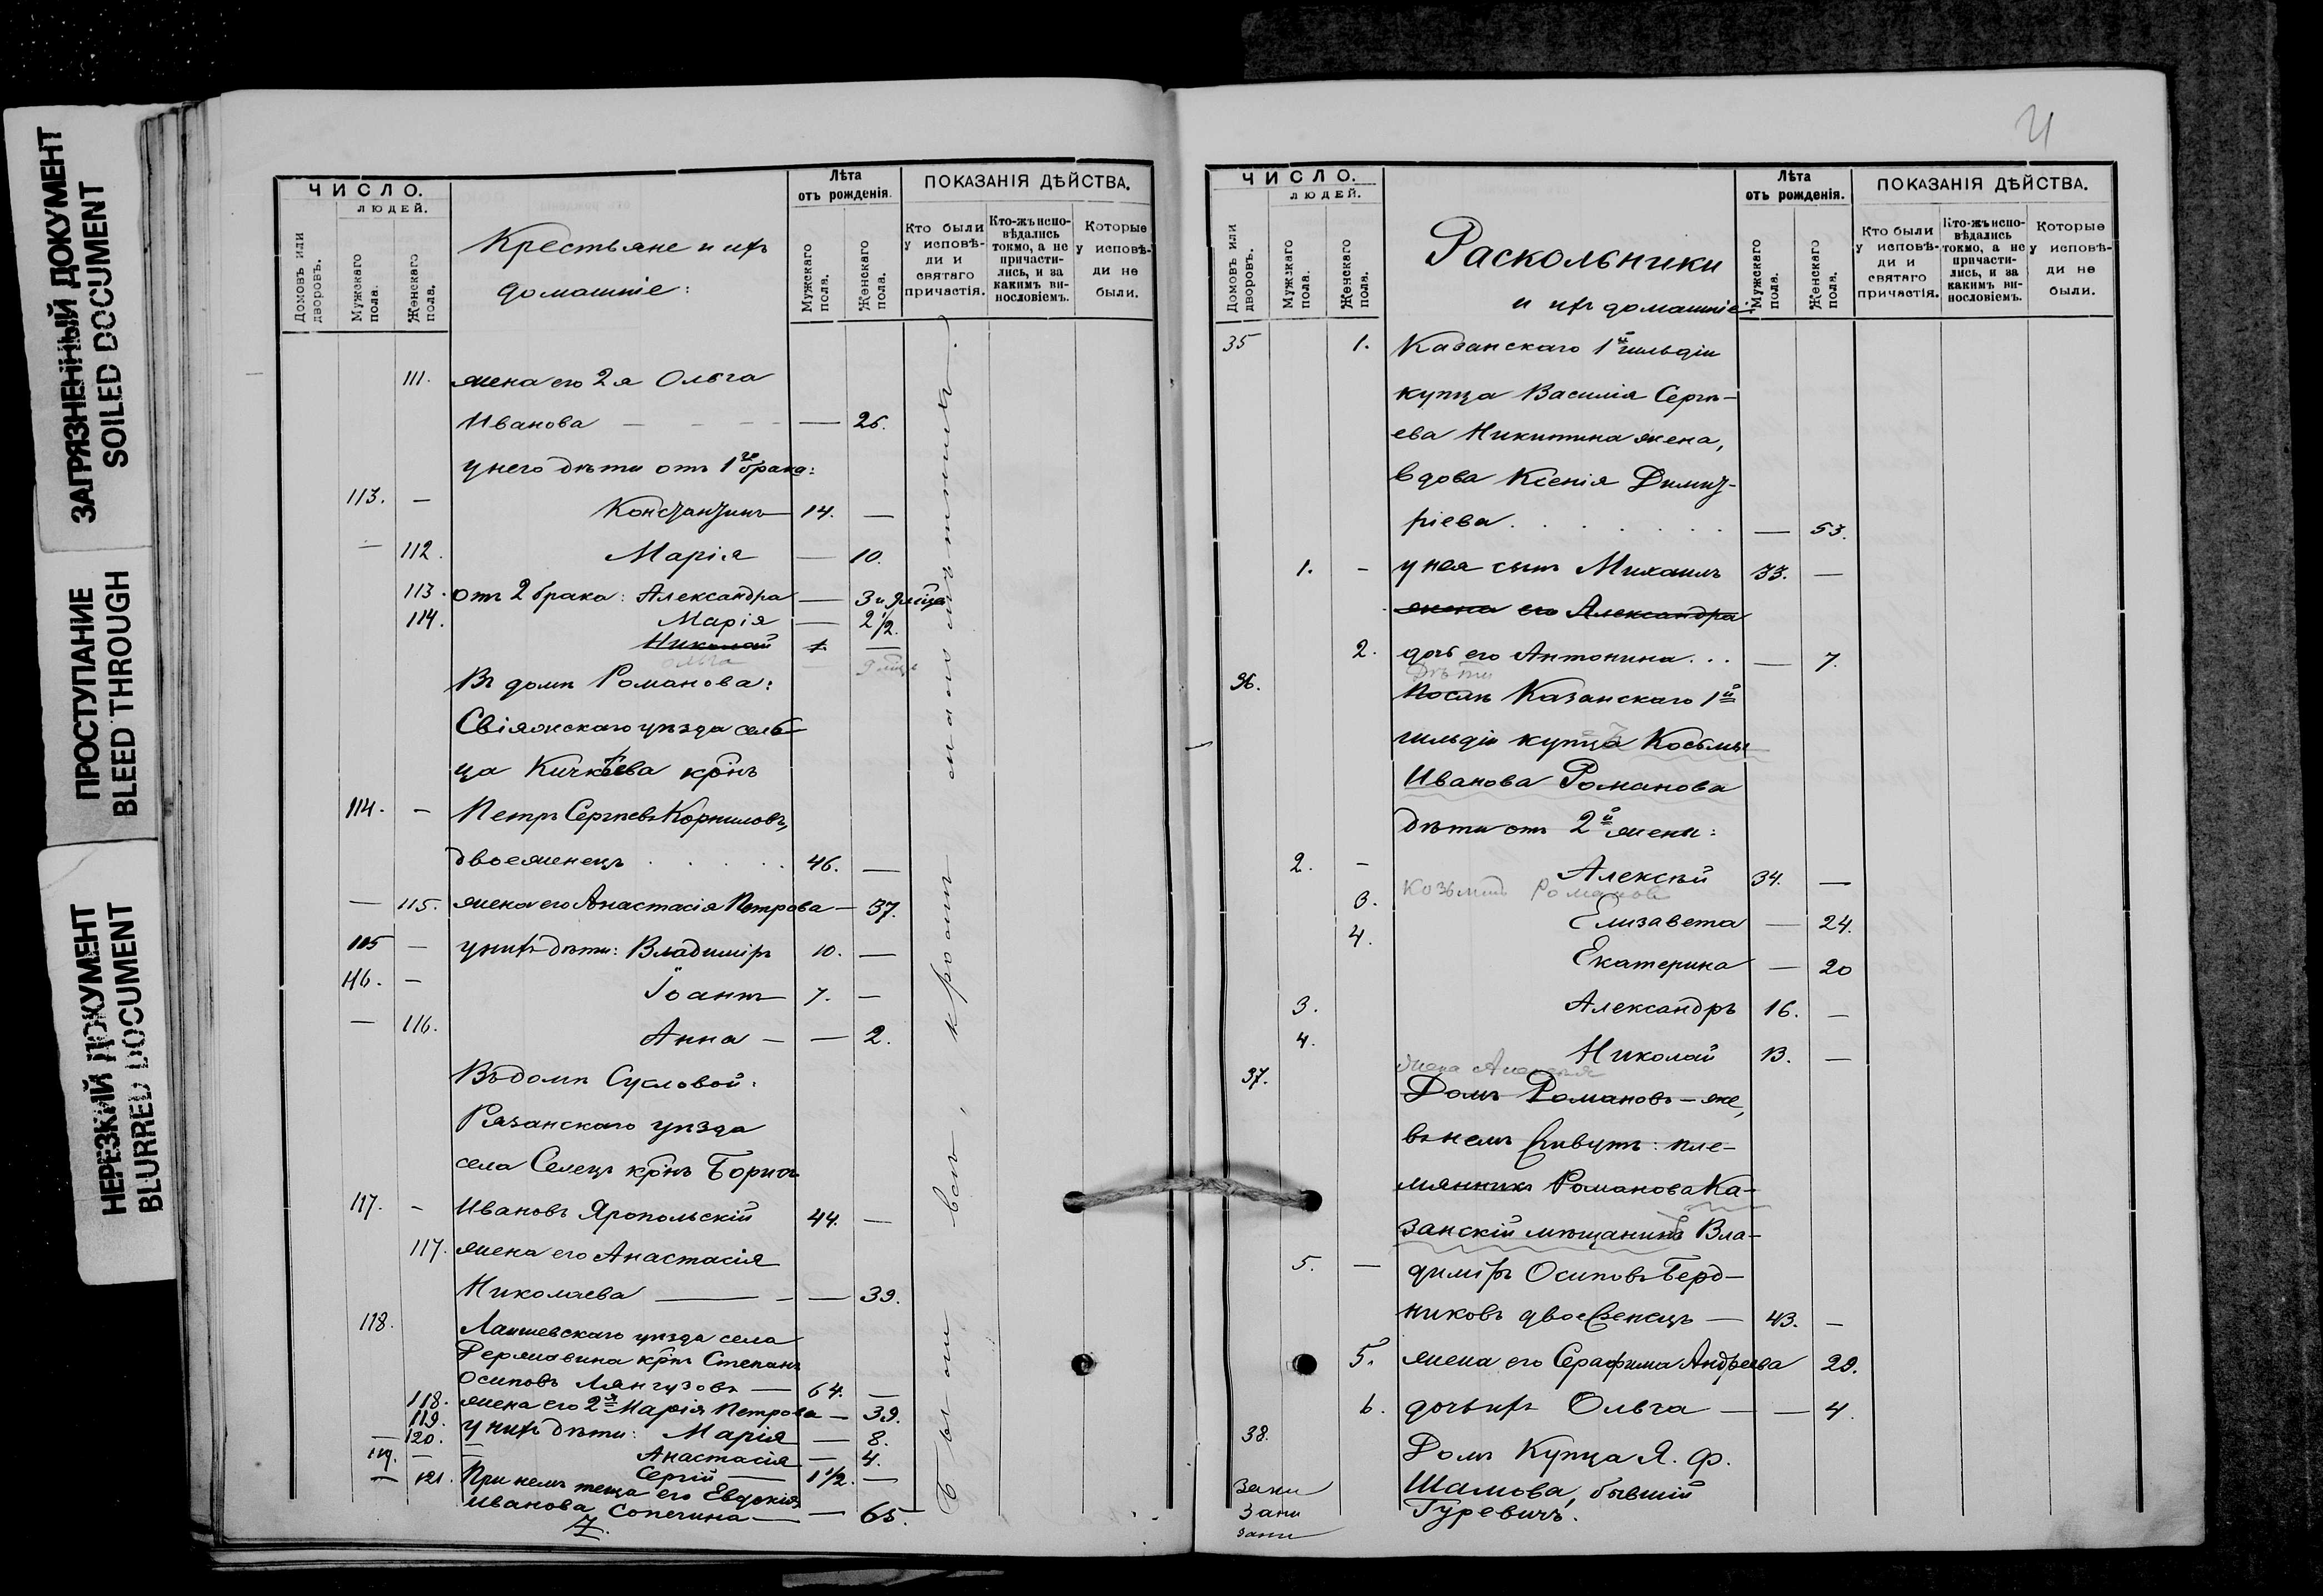 ЗАГРЯЗНЕННЫЙ ДОКУМЕНТ
SOILED DOCUMENT
ПРОСТУПАНИЕ
BLEED THROUGH
НЕРЕЗКИЙ ДОКУМЕНТ
BLURRED DOCUMENT
ЧИСЛО.
ЛЮДЕЙ.
Домовъ или дворовъ.
Мужскаго пола.
Женскаго пола.
Крестьяне и ихъ
домашніе:
Лѣта
отъ рожденія.
Мужскаго пола.
Женскаго пола.
ПОКАЗАНІЯ ДѢЙСТВА.
Кто были у исповѣди и святаго причастія.
Кто-жъ исповѣдались токмо, а не причастились, и за какимъ винословіемъ.
Которые у исповѣди не были.
111. жена его 2я Ольга
Иванова — 26.
у него дѣти отъ 1го брака:
113. — Константинъ 14. —
— 112. Марія — 10.
113. отъ 2 брака: Александра — 3 и 9 мѣсц
114. Марія — 2 1/2.
Николай 1. —
Ольга — 9 мѣсц
Въ домѣ Романова:
Свіяжскаго уѣзда сель
ца Кичкѣева крнъ
114. — Петръ Сергѣевъ Корниловъ,
двоеженецъ . . . . 46. —
— 115. жена его Анастасія Петрова — 37.
115 — у нихъ дѣти: Владиміръ 10. —
116. — Іоаннъ 7. —
— 116. Анна — — 2.
Въ домѣ Сусловой:
Рязанскаго уѣзда
села Селецъ крнъ Борисъ
117. — Ивановъ Яропольскій 44. —
117. жена его Анастасія
Николаева — — 39.
118. Лаишевскаго уѣзда села
Державина крнъ Степанъ
Осиповъ Лянгузовъ — 64. —
118. жена его 2я Марія Петрова — 39.
119. у нихъ дѣти: Марія — 8.
— 120. Анастасія — 4.
119. — Сергій — 1 1/2. —
— 121. При немъ теща его Евдокія
Иванова Сопегина — — 65.
Были всѣ, кромѣ малолѣтнихъ.
ЧИСЛО.
ЛЮДЕЙ.
Домовъ или дворовъ.
Мужскаго пола.
Женскаго пола.
Раскольники
и ихъ домашніе:
Лѣта
отъ рожденія.
Мужскаго пола.
Женскаго пола.
ПОКАЗАНІЯ ДѢЙСТВА.
Кто были у исповѣди и святаго причастія.
Кто-жъ исповѣдались токмо, а не причастились, и за какимъ винословіемъ.
Которые у исповѣди не были.
35 1. Казанскаго 1й гильдіи
купца Василія Сергѣ-
ева Никитина жена,
вдова Ксенія Димит-
ріева . . . . . — 53.
1. - у нея сынъ Михаилъ 33. —
жена его Александра
2. дочь его Антонина . . . — 7.
Дѣти
36. Посал Казанскаго 1й
гильдіи купца Косьмы
Иванова Романова
дѣти отъ 2й жены:
2. - Алексѣй 34. —
Козьмы Романова
3. Елизавета — 24.
4. Екатерина — 20
3. Александръ 16. —
4. Николай 13. —
жена Алексѣя
37. Домъ Романовъ-же,
въ немъ живутъ: пле-
мянникъ Романова Ка-
занскій мѣщанинъ Вла-
5. — диміръ Осиповъ Берд-
никовъ двоеженецъ — 43. —
5. жена его Серафима Андреева 29.
6. дочь ихъ Ольга — — 4.
38. Домъ Купца Я. Ф.
Шамова, бывшій
Гуревичъ.
Зани
Зани
Зани